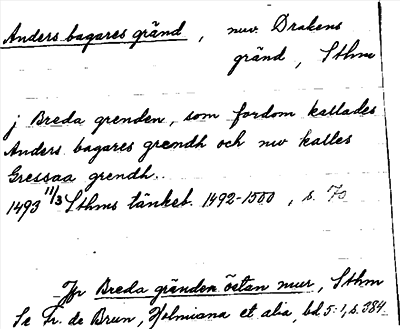 Anders bagares gränd, nuv. Drakens
gränd, Sthm
j Breda grenden, som fordom kallades
Anders bagares grendh och nw kalles
Gressaa grendh..
1493 11/3 Sthms tänkeb. 1492-1500, s. 70
Jfr Breda gränden östan mur, Sthm
Se Fr. de Brun, Holmiana et alia, bd 5:1, s. 384.